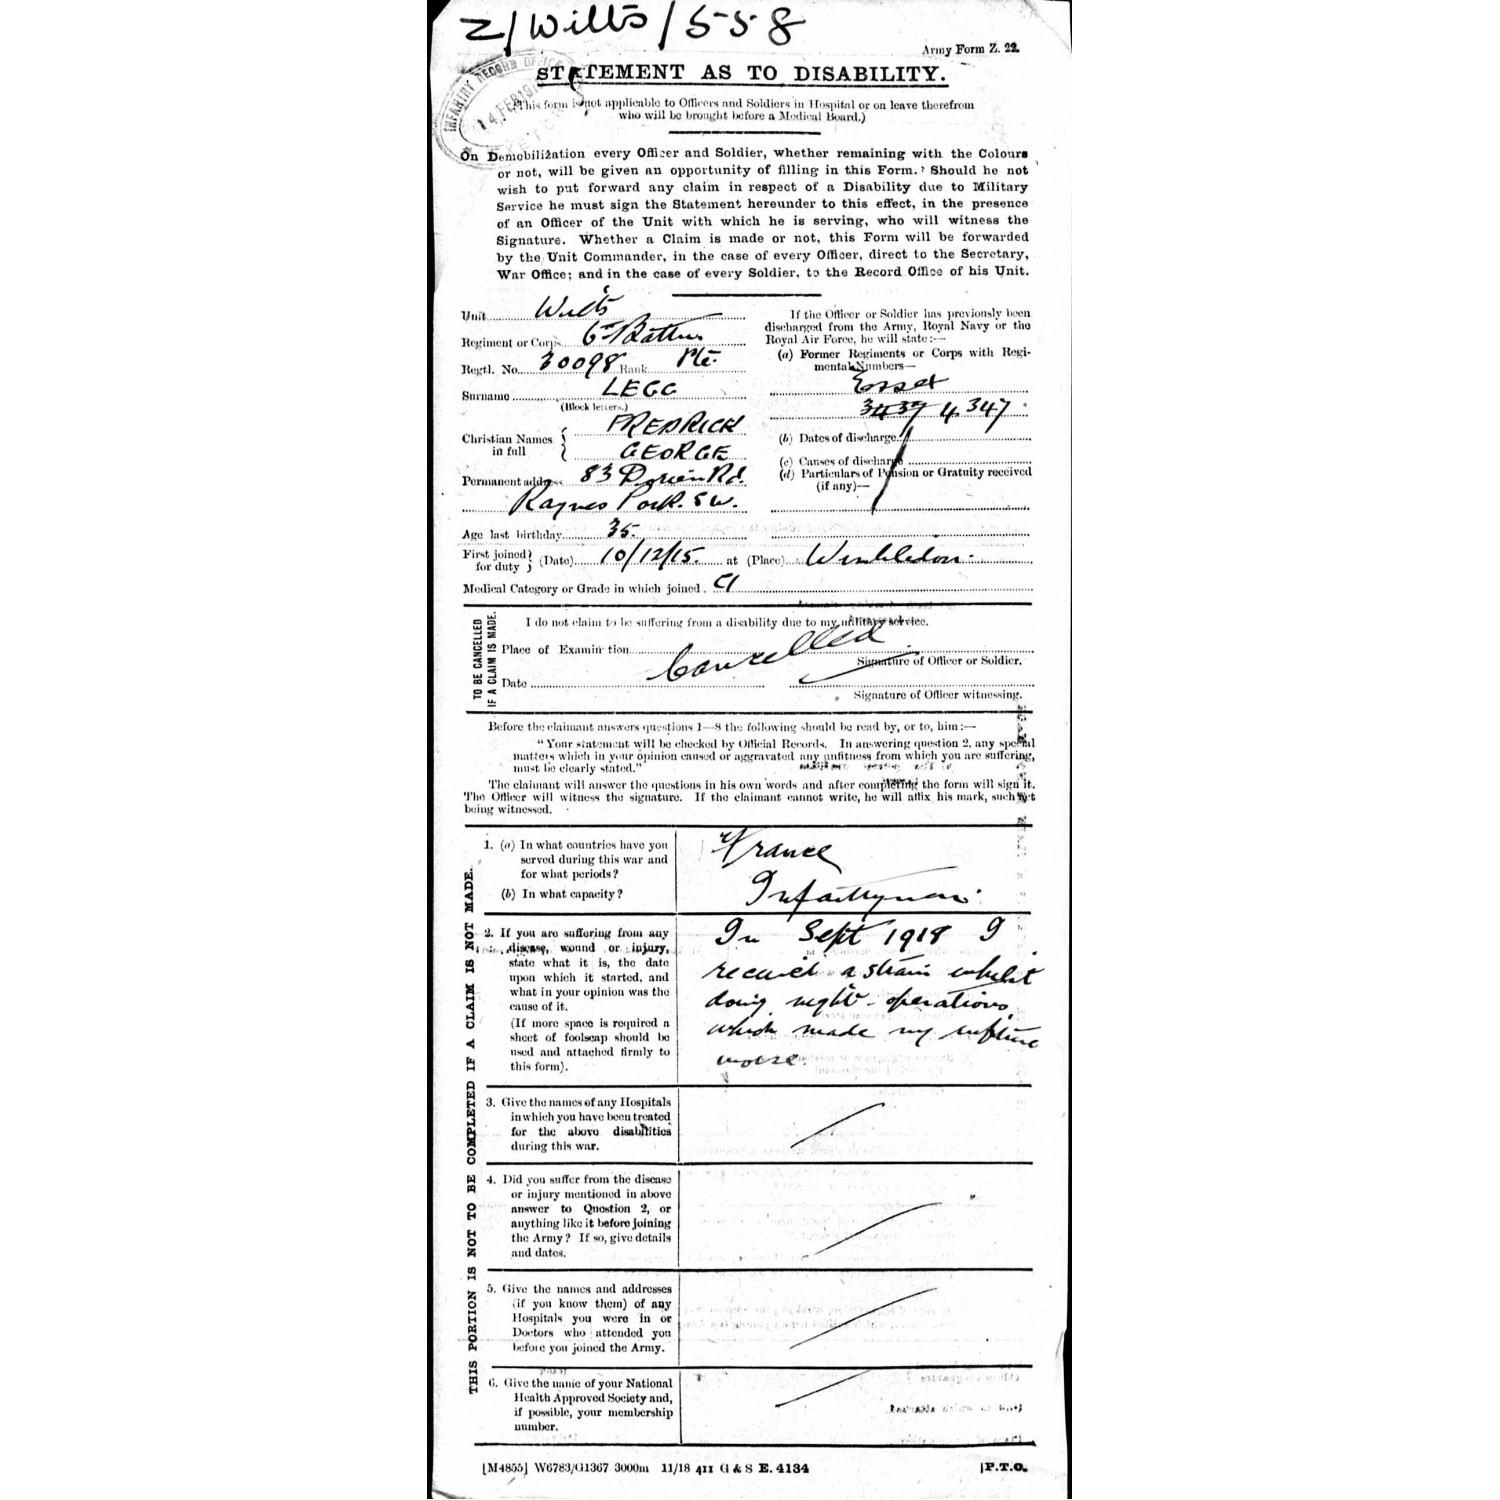 Z/Wilts/558
Army Form Z. 22.
INFANTRY RECORD OFFICE
14 FEB 191
EXETER
STATEMENT AS TO DISABILITY.
(This form is not applicable to Officers and Soldiers in Hospital or on leave therefrom
who will be brought before a Medical Board.)
On Demobilization every Officer and Soldier, whether remaining with the Colours
or not, will be given an opportunity of filling in this Form. Should he not
wish to put forward any claim in respect of a Disability due to Military
Service he must sign the Statement hereunder to this effect, in the presence
of an Officer of the Unit with which he is serving, who will witness the
Signature. Whether a Claim is made or not, this Form will be forwarded
by the Unit Commander, in the case of every Officer, direct to the Secretary,
War Office; and in the case of every Soldier, to the Record Office of his Unit.
Unit Wilts
Regiment or Corps 6th Battn
Regtl. No. 30098 Rank Pte.
Surname LEGG
(Block letters.)
Christian Names in full FREDRICK
GEORGE
Permanent address 83 Dorien Rd.
Raynes Park. S W.
If the Officer or Soldier has previously been
discharged from the Army, Royal Navy or the
Royal Air Force, he will state:—
(a) Former Regiments or Corps with Regi-
mental Numbers—
Essex
3437 4347
(b) Dates of discharge
(c) Causes of discharge
(d) Particulars of Pension or Gratuity received
(if any)—
Age last birthday 35.
First joined for duty (Date) 10/12/15. at (Place) Wimbledon.
Medical Category or Grade in which joined. C1
TO BE CANCELLED
IF A CLAIM IS MADE.
I do not claim to be suffering from a disability due to my military service.
Place of Examination
Cancelled
Signature of Officer or Soldier.
Date
Signature of Officer witnessing.
Before the claimant answers questions 1—8 the following should be read by, or to, him:—
"Your statement will be checked by Official Records. In answering question 2, any special
matters which in your opinion caused or aggravated any unfitness from which you are suffering,
must be clearly stated."
The claimant will answer the questions in his own words and after completing the form will sign it.
The Officer will witness the signature. If the claimant cannot write, he will affix his mark, such
being witnessed.
THIS PORTION IS NOT TO BE COMPLETED IF A CLAIM IS NOT MADE.
1. (a) In what countries have you
served during this war and
for what periods?
(b) In what capacity?
France
Infantryman
2. If you are suffering from any
disease, wound or injury,
state what it is, the date
upon which it started, and
what in your opinion was the
cause of it.
(If more space is required a
sheet of foolscap should be
used and attached firmly to
this form).
In Sept 1918 I
received a strain whilst
doing night operations
which made my rupture
worse.
3. Give the names of any Hospitals
in which you have been treated
for the above disabilities
during this war.
4. Did you suffer from the disease
or injury mentioned in above
answer to Question 2, or
anything like it before joining
the Army? If so, give details
and dates.
5. Give the names and addresses
(if you know them) of any
Hospitals you were in or
Doctors who attended you
before you joined the Army.
6. Give the name of your National
Health Approved Society and,
if possible, your membership
number.
[M4855] W6783/G1367 3000m 11/18 411 G & S E. 4134
[P.T.O.